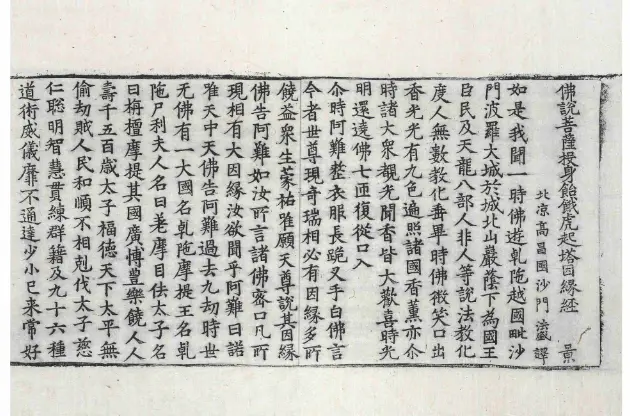 佛說菩薩投身飴餓虎起塔因緣經　景
北涼高昌國沙門法盛譯
如是我聞一時佛遊乹陁越國毗沙
門波羅大城於城北山巖蔭下為國王
臣民及天龍八部人非人等說法教化
度人無數教化垂畢時佛微笑口出
香光光有九色遍照諸國香薰亦尒
時諸大衆覩光聞香皆大歡喜時光
明還遶佛七匝復從口入
尒時阿難整衣服長跪叉手白佛言
今者世尊現奇瑞相必有因緣多所
饒益衆生蒙祐唯願天尊說其因緣
佛告阿難如汝所言諸佛密口凡所
現相有大因緣汝欲聞乎阿難曰諾
唯天中天佛告阿難過去九劫時世
无佛有一大國名乹陁摩提王名乹
陁尸利夫人名曰差摩目佉太子名
曰栴檀摩提其國廣博豐樂饒人人
壽千五百歲太子福德天下太平無
偷劫賊人民和順不相剋伐太子慈
仁聡明智慧貫練群籍及九十六種
道術威儀靡不通達少小已来常好